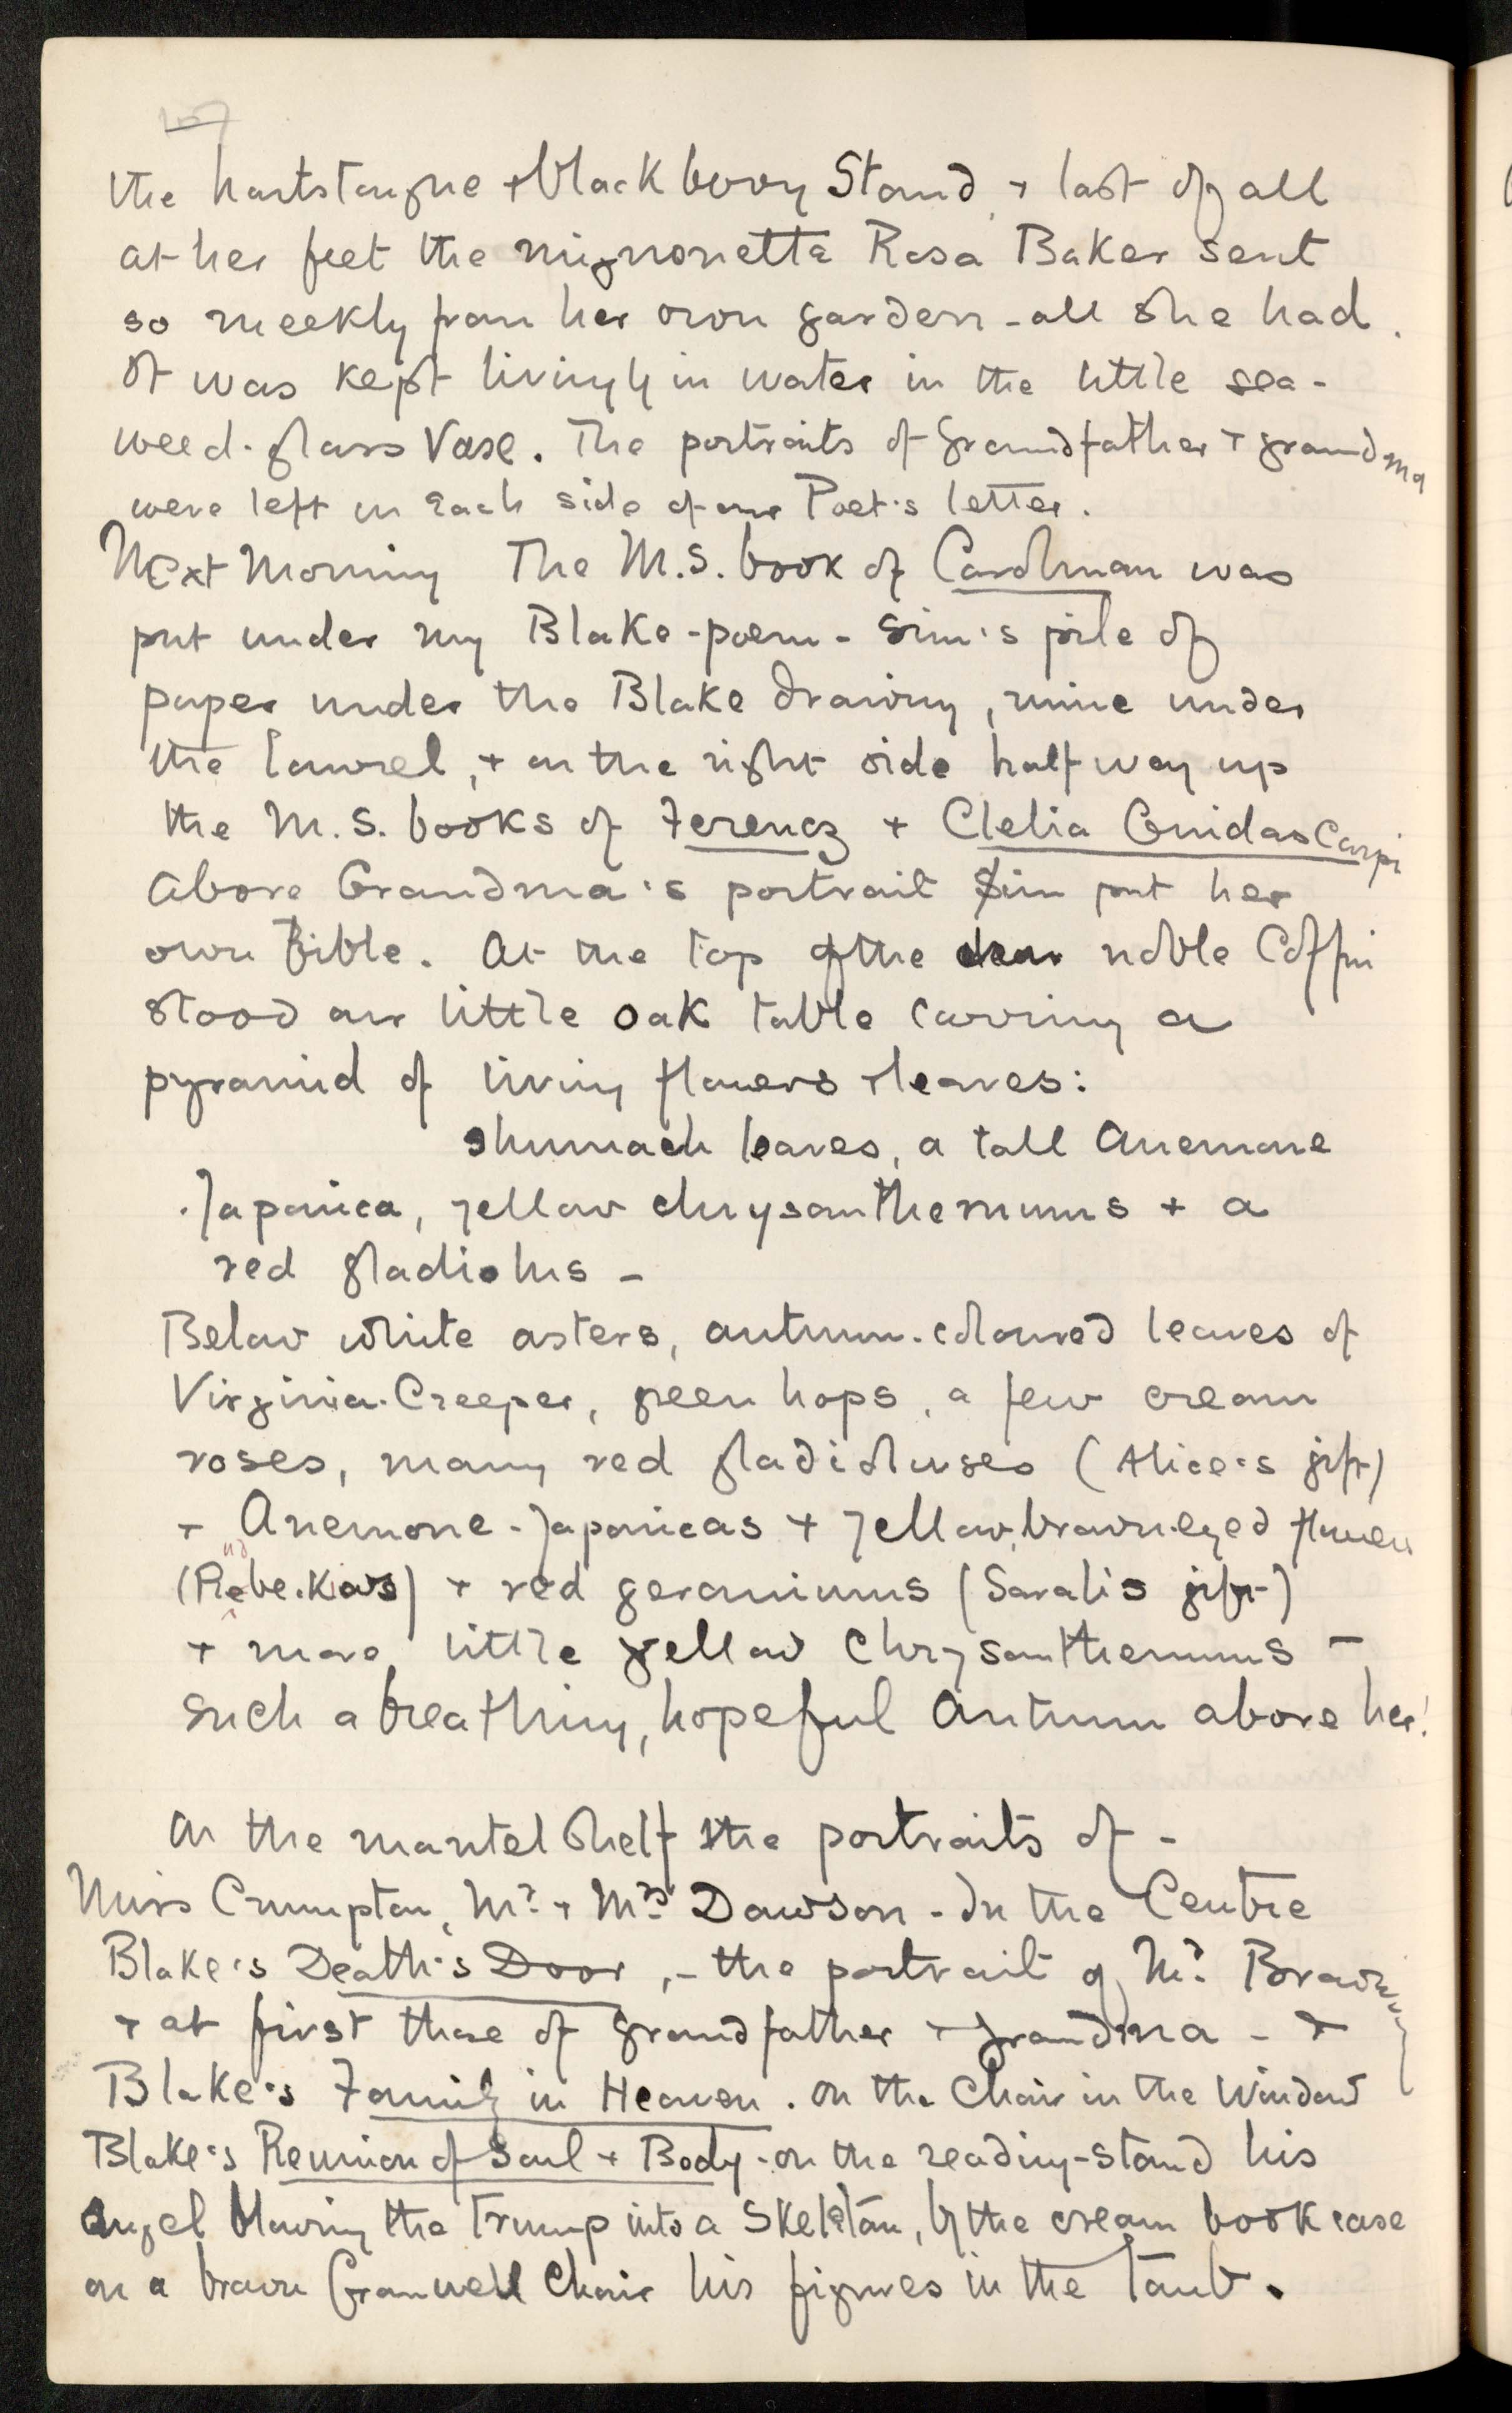 the hartstongue + blackberry Stand, + last of all
at her feet the mignonette Rosa Baker sent
so meekly from her own garden – all she had.
It was kept livingly in water in the little sea-
weed-glass Vase. The portraits of grandfather + grandma
were left on each side of our Poet's letter.
Next Morning The M.S. book of Carloman was
put under my Blake-poem – Sim's pile of
paper under the Blake drawing, mine under
the laurel, + on the right side half way up
the M.S. books of Ferencz + Clelia Guidascarpi
Above Grandma's portrait Sim put her
own Bible. At the top of the dear noble Coffin
stood our little oak table carrying a
pyramid of living flowers + leaves:
shumach leaves, a tall Anemone
Japonica, yellow chrysanthemums + a
red gladiolus –
Below white asters, autumn-coloured leaves of
Virginia-Creeper, green hops, a few cream
roses, many red gladioluses (Alice's gift)
+ Anemone-Japonicas + yellow, brown-eyed flowers
(Rudbe.Kias) + red geraniums (Sarah's gift)
+ more little yellow Chrysanthemums –
Such a breathing, hopeful Autumn above her!
On the mantel shelf the portraits of –
Miss Crumpton, Mr. + Mrs Dawson – In the Centre
Blake's Death's Door, – the portrait of Mr. Browning
+ at first those of grandfather + grandma – +
Blake's Family in Heaven. On the Chair in the Window
Blake's Reunion of Soul + Body – on the reading-stand his
Angel blowing the Trump into a Skeleton, by the cream bookcase
on a brown Cromwell Chair his figures in the Tomb.